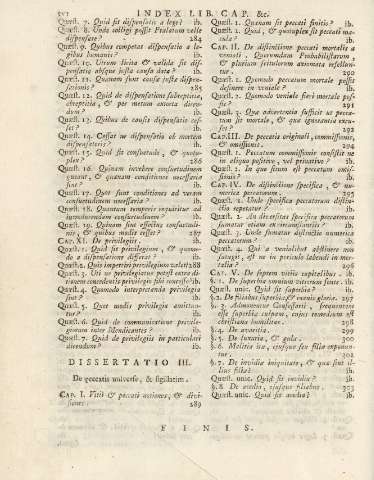 xvi INDEX LIB. CAP. &c.
Quæst. 7. Quid sit dispensatio a lege? ib.
Quæst. 8. Unde colligi possit Prælatum velle
dispensare? 284
Quæst. 9. Quibus competat dispensatio a le-
gibus humanis? ib.
Quæst. 10. Utrum licita & valida sit dis-
pensatio absque justa causa data? ib.
Quæst. 11. Quænam sint causæ justæ dispen-
sationis? 285
Quæst. 12. Quid de dispensatione subreptitia,
obreptitia, & per metum extorta dicen-
dum? ib.
Quæst. 13. Quibus de causis dispensatio ces-
set? ib.
Quæst. 14. Cesset ne dispensatio ob mortem
dispensatoris? ib.
Quæst. 15. Quid sit consuetudo, & quotu-
plex? 286
Quæst. 16. Quinam invehere consuetudinem
queant, & quænam conditiones necessariæ
sint? ib.
Quæst. 17. Quot sint conditiones ad veram
consuetudinem necessariæ? ib.
Quæst. 18. Quantum temporis requiritur ad
introducendam consuetudinem? ib.
Quæst. 19. Quinam sint effectus consuetudi-
nis, & quibus modis cesset? 287
CAP. XI. De privilegiis. ib.
Quæst. 1. Quid sit privilegium, & quomo-
do a dispensatione differat? ib.
Quæst. 2. Quis impertiri privilegium valeat? 288
Quæst. 3. Uti ne privilegiatus potest extra di-
tionem concedentis privilegio sibi concesso? ib.
Quæst. 4. Quomodo interpretanda privilegia
sint? ib.
Quæst. 5. Quot modis privilegia amittan-
tur? ib.
Quæst. 6. Quid de communicatione privile-
giorum inter Mendicantes? ib.
Quæst. 7. Quid de privilegiis in particulari
dicendum? ib.
DISSERTATIO III.
De peccatis universe, & sigillatim.
CAP. I. Vitii & peccati notiones, & divi-
siones. 289
Quæst. 1. Quænam sit peccati finitio? ib.
Quæst. 2. Quid, & quotuplex sit peccati ma-
teria? ib.
CAP. II. De distinctione peccati mortalis a
veniali. Quorumdam Probabilistarum,
& plurium scitulorum amanuum insellun-
tur. 290
Quæst. 1. Quomodo peccatum mortale possit
desinere in veniale? ib.
Quæst. 2. Quomodo veniale fieri mortale pos-
sit? 291
Quæst. 3. Quæ advertentia sufficit ut pecca-
tum sit mortale, & quæ ignorantia excu-
set? 292
CAP. III. De peccatis originali, commissionis,
& omissionis. 294
Quæst. 1. Peccatum commissionis consistit ne
in aliquo positivo, vel privativo? ib.
Quæst. 2. In quo situm est peccatum omis-
sionis? ib.
CAP. IV. De distinctione specifica, & nu-
merica peccatorum. 295
Quæst. 1. Unde specifica peccatorum distin-
ctio repetatur? ib.
Quæst. 2. An diversitas specifica peccatorum
sumatur etiam ex circumstantiis? ib.
Quæst. 3. Unde sumatur distinctio numerica
peccatorum? ib.
Quæst. 4. Qui a venialibus abstinere non
satagit, est ne in periculo labendi in mor-
talia? 296
CAP. V. De septem vitiis capitalibus. ib.
§. 1. De superbia omnium vitiorum fonte. ib.
Quæst. unic. Quid sit superbia? ib.
§. 2. De filiabus superbiæ, & vanæ gloriæ. 297
§. 3. Admonentur Confessarii, frequentem
esse superbiæ culpam, cujus remedium est
christiana humilitas. 298
§. 4. De avaritia. 299
§. 5. De luxuria, & gula. 300
§. 6. Molestia ira, ejusque sex filiæ expanan-
tur. 302
§. 7. De invidiæ iniquitate, & quæ sint il-
lius filiæ? ib.
Quæst. unic. Quid sit invidia? ib.
§. 8. De acedia, ejusque filiabus. 303
Quæst. unic. Quid sit acedia? ib.
FINIS.